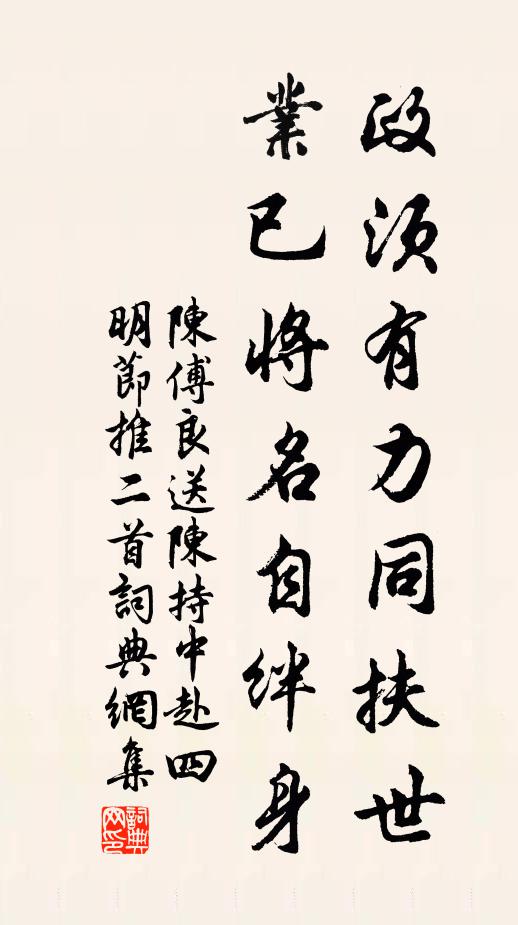 政須有力同扶世
業已將名自絆身
陳傅良送陳持中赴四
明節推二首詞典網集
詞典網印